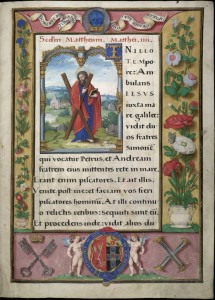 Scdm Mattheum, Matthei, iiii.
IN ILLO
TEMpo
re: Am
bulans
IESVS
iuxta ma
re galileę:
vidit du
os fratres
Simonē
qui vocatur Petrus, et Andream
fratrem eius mittentes rete in mare.
Erant enim piscatores. Et ait illis.
Venite post me: et faciam vos fieri
piscatores hominū. At illi continu
o relictis retibus: sequuti sunt eū.
Et procedens inde: vidit alios du